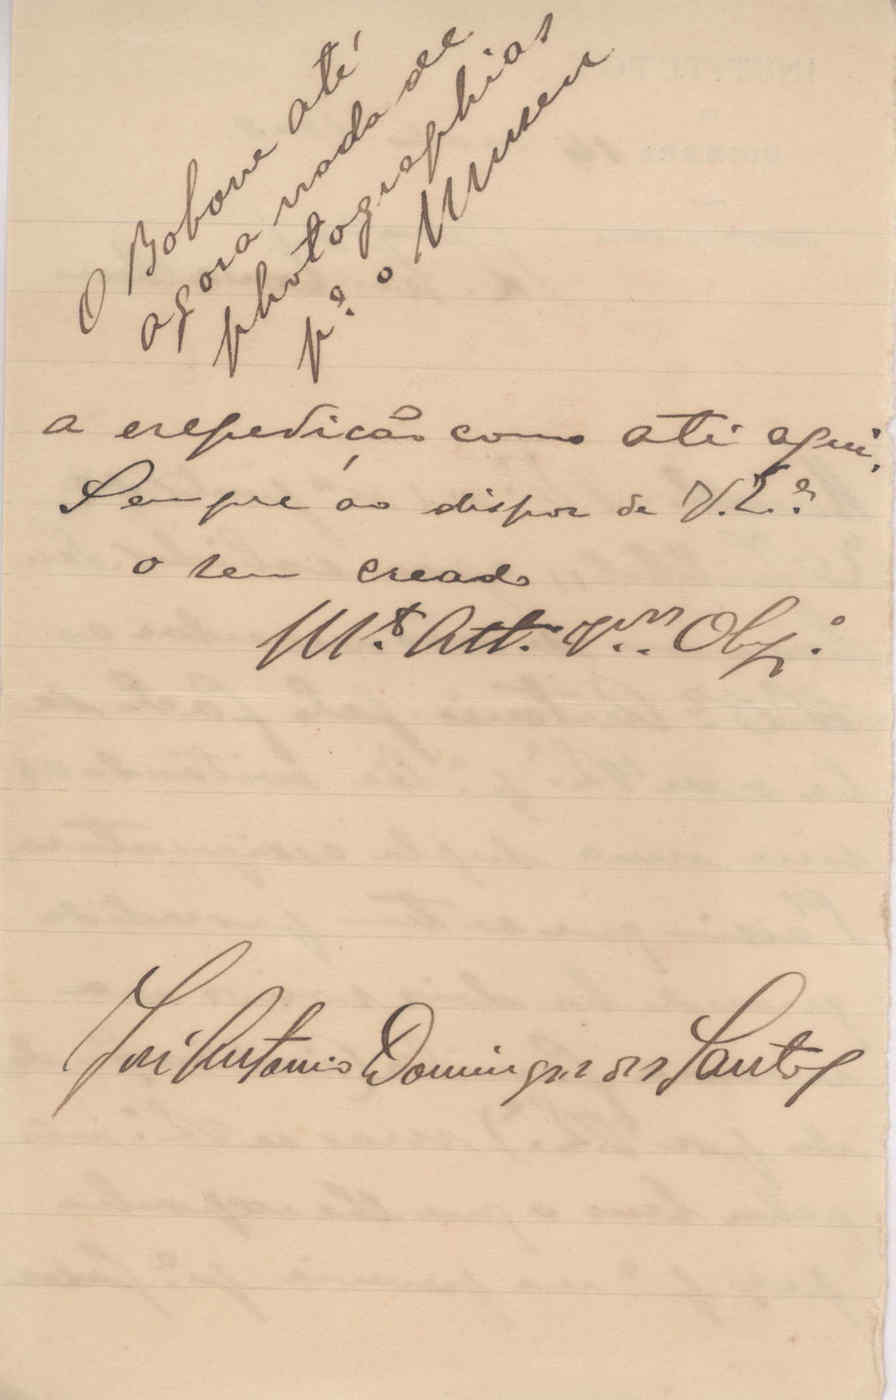 O Bobone até
agora nada de
photographias
p.ª o Museu
a expedição como até aqui.
Sempre ao dispor de V. E.ª
o seu creado
M.to Att.º V.or Obg.º
José Antonio Domingues dos Santos